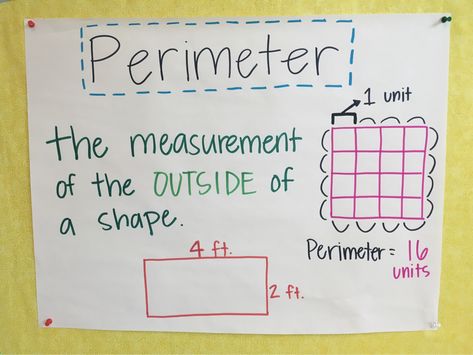 Perimeter
the measurement
of the OUTSIDE of
a shape.
1 unit
Perimeter = 16
units
4 ft.
2 ft.